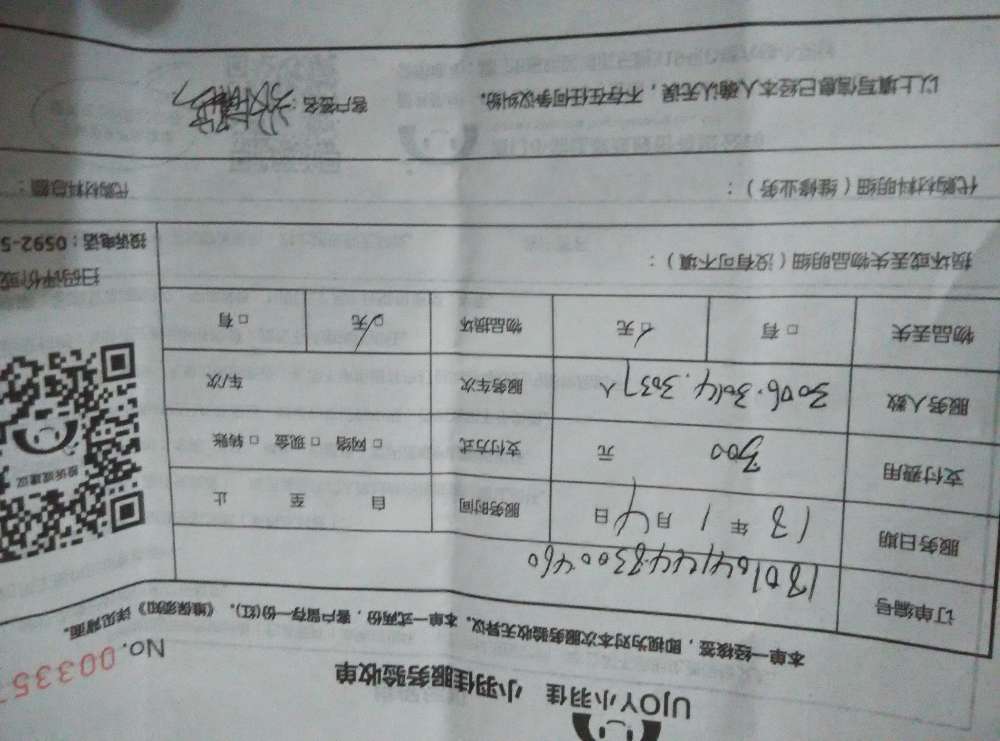 UJOY小羽佳 小羽佳服务验收单
No. 00335
本单一经核签，即视为对本次服务验收无异议。本单一式两份，客户留存一份(红)。《维保须知》详见背面。
订单编号 1801041448300460
服务日期 18 年 1 月 4 日 服务时间 自 至 止
支付费用 300 元 支付方式 □ 网络 □ 现金 □ 转账
服务人数 3006.3014.3037 人 服务车次 车/次
物品丢失 □ 有 □ 无 物品损坏 □ 无 □ 有
投诉或建议
损坏或丢失物品明细（没有可不填）：
扫码评价或
投诉电话：0592-5
代购材料明细（维修业务）：
代购材料总额：
以上填写信息已经本人确认无误，不存在任何争议纠纷。 客户签名：